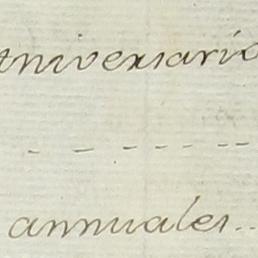 Aniversario
- - - - - -
annuales..